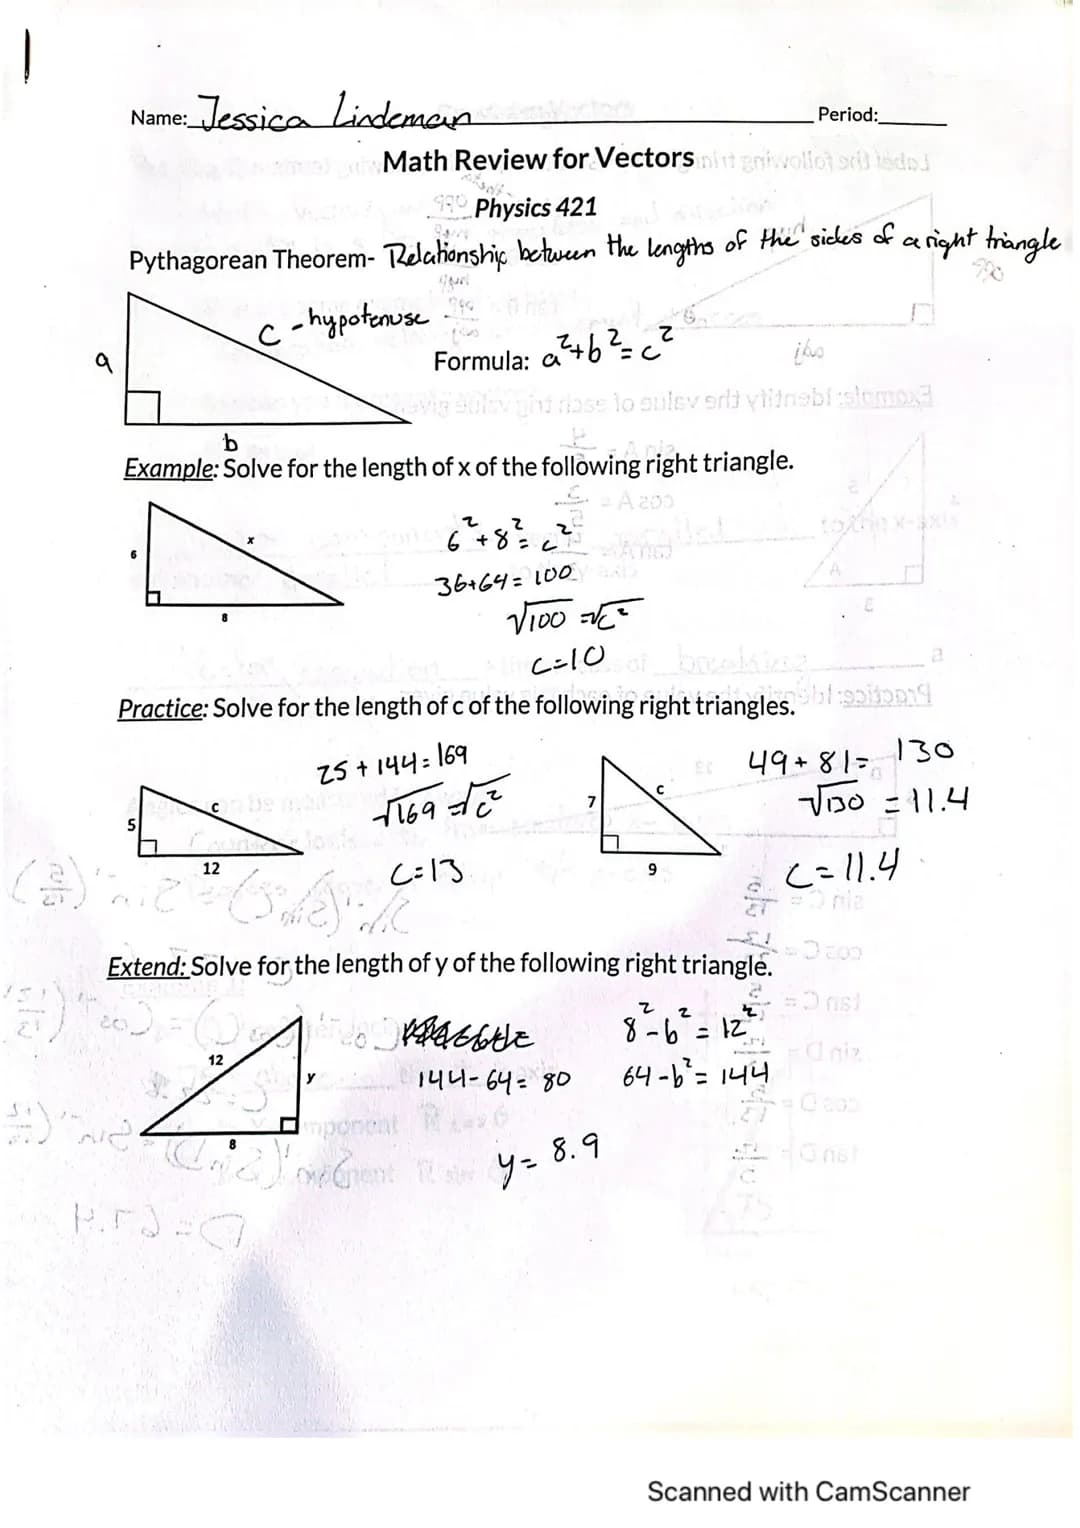 Name: Jessica Lindeman Period:
Math Review for Vectors
Physics 421
Pythagorean Theorem- Relationship between the lengths of the sides of a right triangle
c - hypotenuse
a
Formula: a²+b²=c²
b
Example: Solve for the length of x of the following right triangle.
6
x
8
6²+8²=c²
36+64=100
√100 =√c²
c=10
Practice: Solve for the length of c of the following right triangles.
5
c
12
25+144=169
√169=√c²
c=13
7
c
9
49+81=130
√130 =11.4
c=11.4
Extend: Solve for the length of y of the following right triangle.
12
y
8
144-64=80
8²-b²=12²
64-b²=144
y= 8.9
Scanned with CamScanner